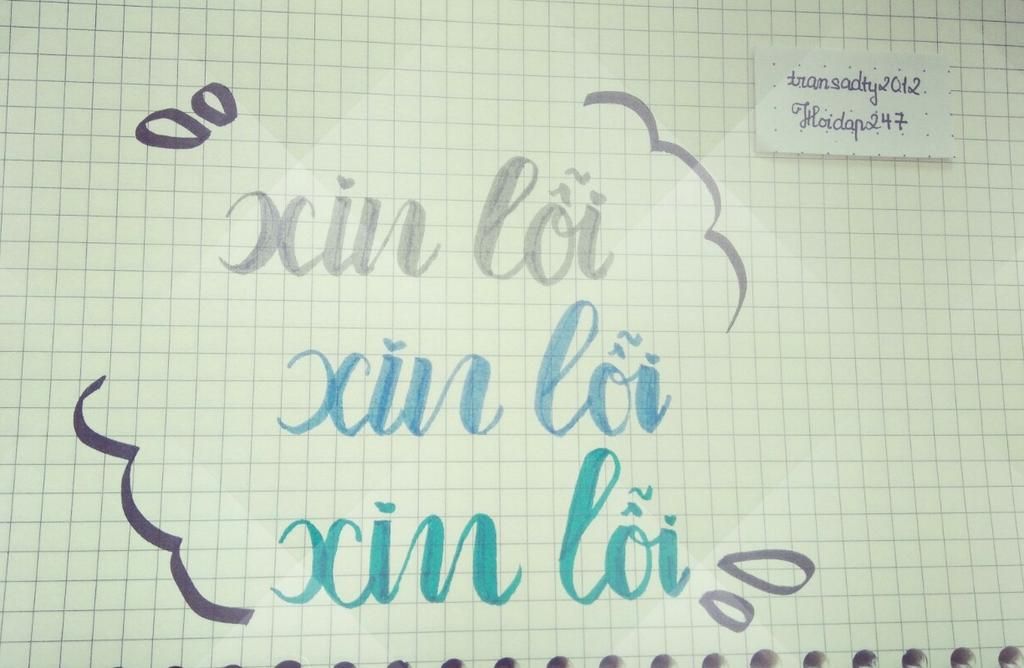 transadty2012.
Hoidap247
xin lỗi
xin lỗi
xin lỗi